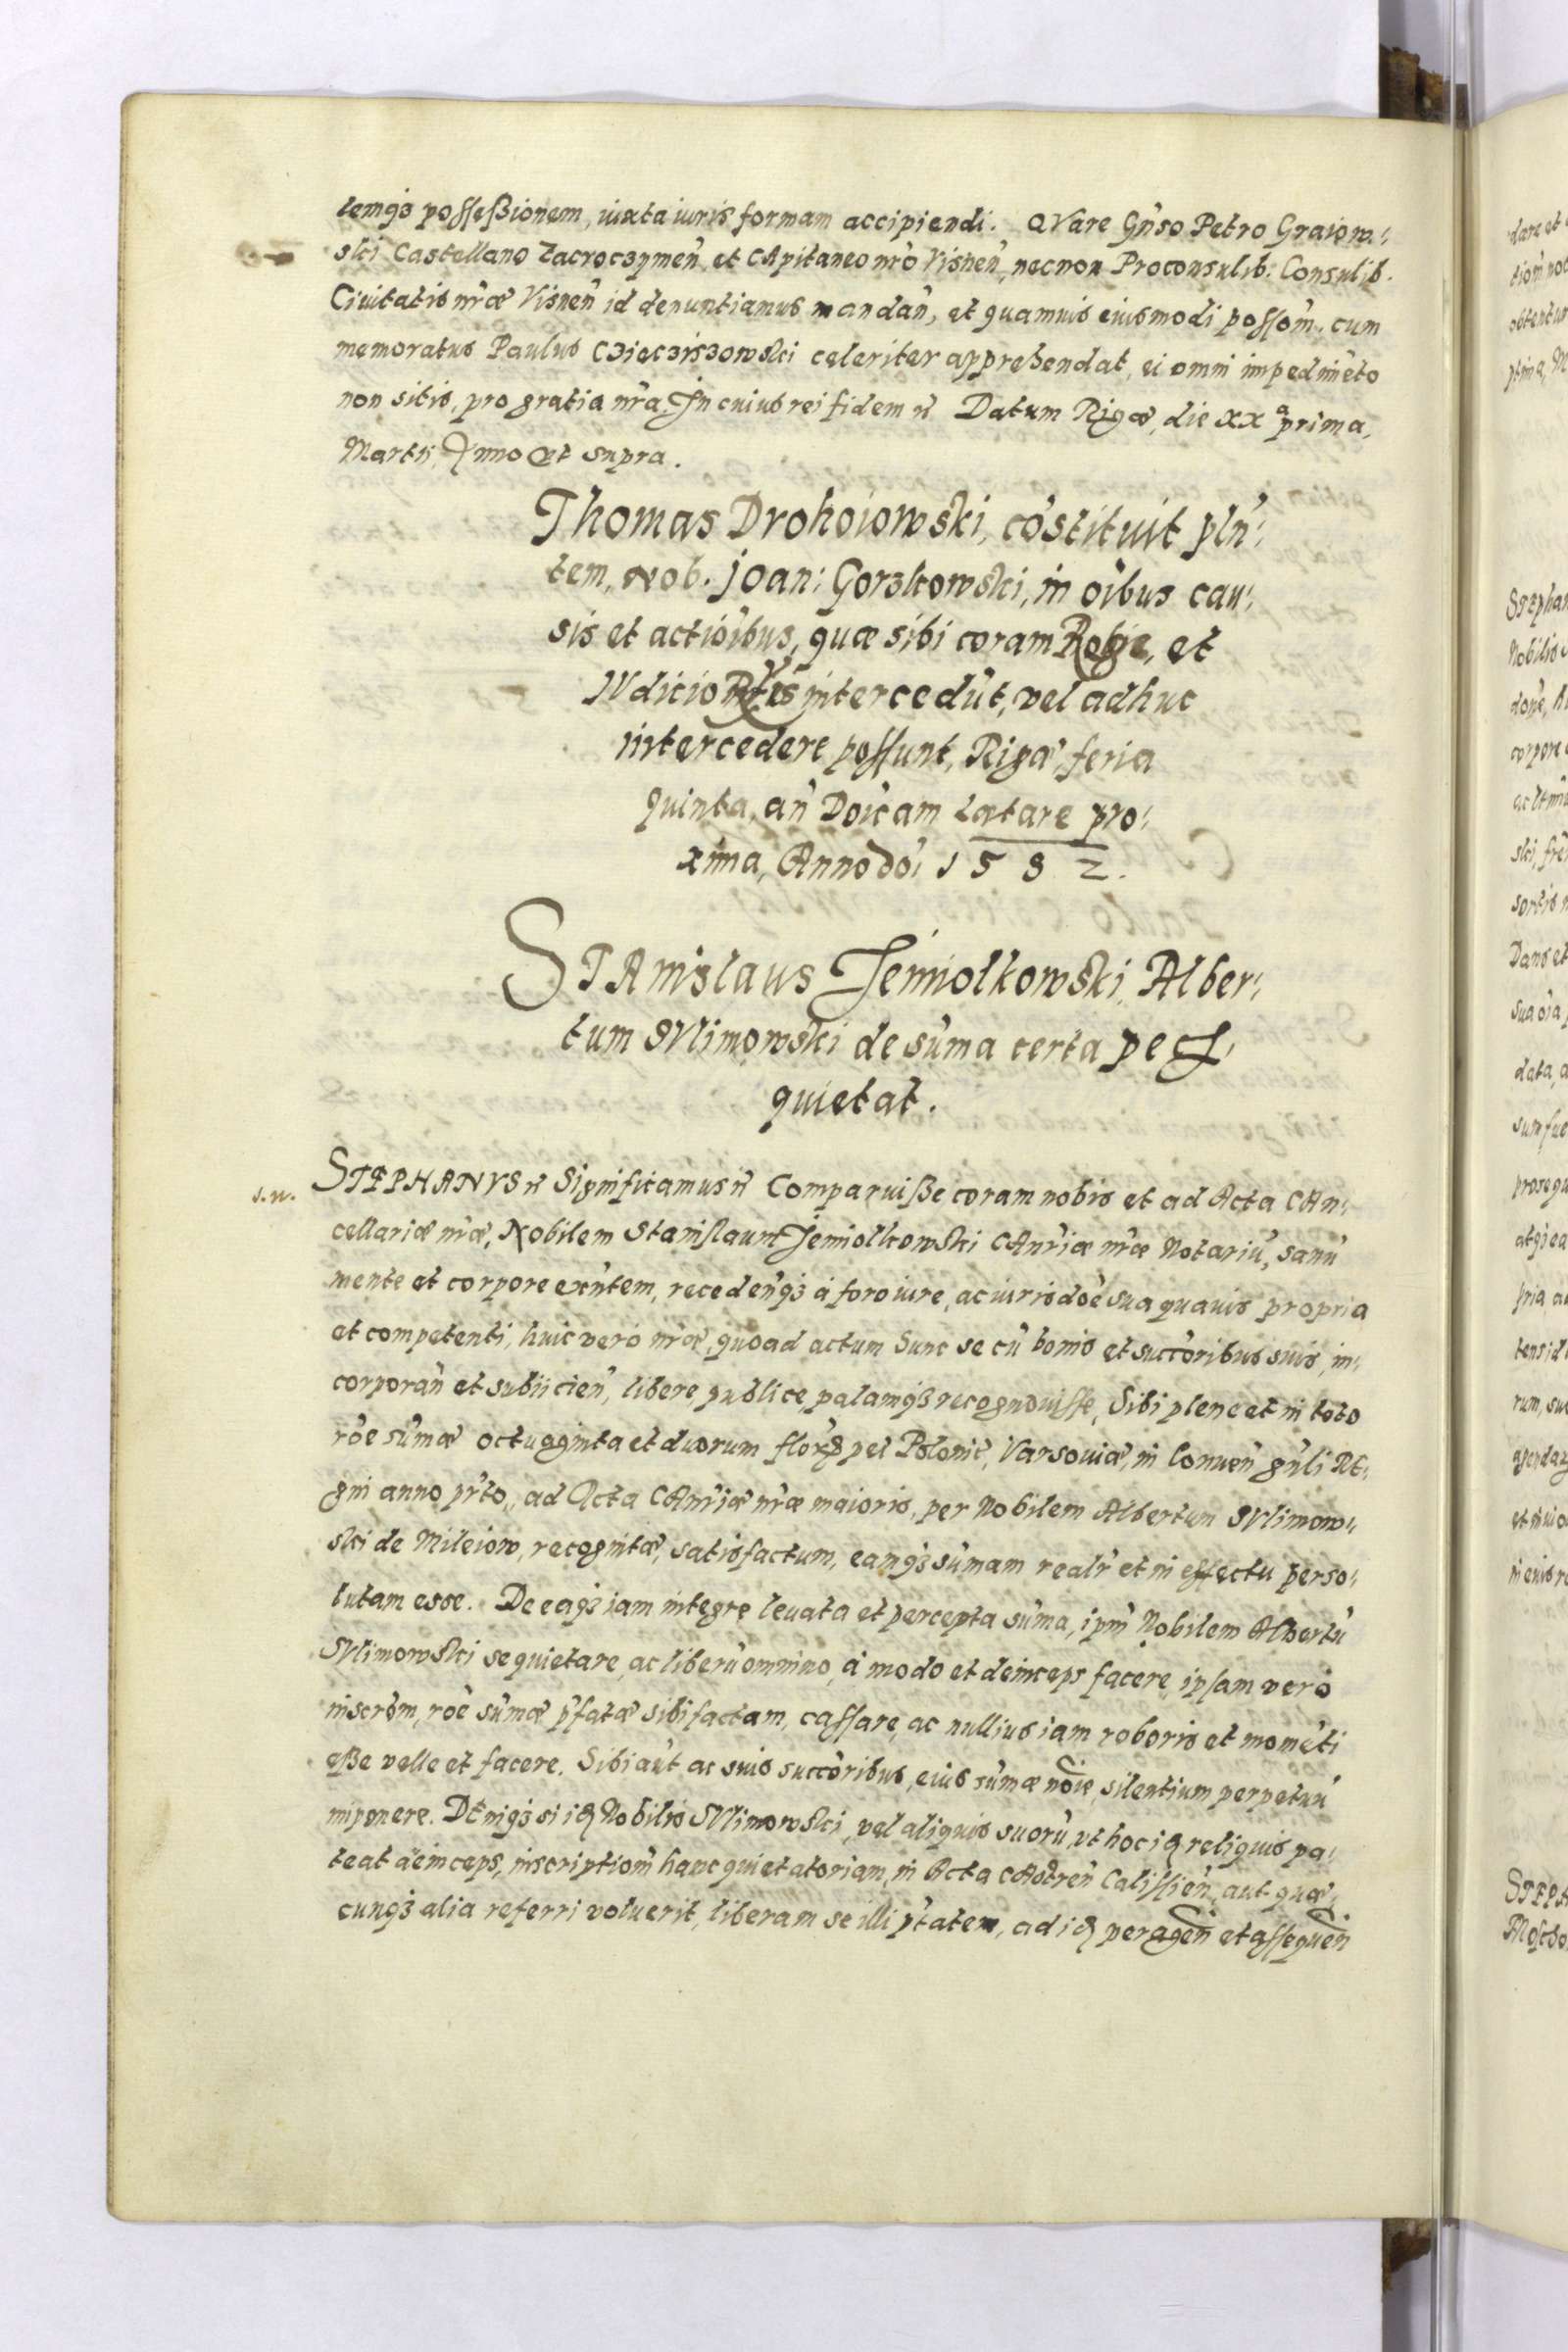 temq3 possessionem, iuxta iuris formam accipiendi. QVare Gn̄so Petro Graiow:
ski Castellano Zacroczymen̄ et CApitaneo nr̄o Visnen̄, necnon Proconsulib: Consulib.
Ciuitatis nr̄æ Visnen̄ id denuntiamus mandan̄, et quamuis eiusmodi possōm, cum
memoratus Paulus Czieczisz̄owski celeriter apprehendat, ei omni impedimēto
non sitis, pro gratia nr̄a. In cuius rei fidem etc Datum Rigæ, die xxª prima,
Martii, Anno Vt supra.
Thomas Drohoiowski, cōstituit pln̄:
tem, Nob. Joan: Gorzkowski, in oībus cau:
sis et actioībus, quæ sibi coram Rege, et
IVdicio Rtis intercedūt, vel adhuc
intercedere possunt, Rigæ, feria
quinta, an̄ Doīcam Lætare pro:
xima, Anno dōi 1582.
STAnizlaus Jemiolkowski Alber:
tum SVlimowski de sūma certa pec:
quietat.
s. w.
STEPHANVS etc Significamus etc Comparuisse coram nobis et ad Acta CAn:
cellariæ nr̄æ, Nobilem Stanislaum Jemiolkowski CAnr̄iæ nr̄æ Notariū, sanū
mente et corpore exn̄tem, recedenq3 à foro iure, ac iurisdōe sua quauis propria
et competenti, huic vero nr̄æ, quoad actum hunc se cū bonis et succoribus suis, in:
corporan̄ et subiicien̄, libere, publice, palamq3 recognouisse, Sibi plene et in toto
rōe sūmæ octuaginta et duorum flor pel Polonic̄, Varsouiæ, in Conuen̄ gn̄li RE:
gni anno pr̄to, ad Acta CAnr̄iæ nr̄æ maioris, per Nobilem Albertum SVlimow:
ski de Mileiow, recognitæ, satisfactum, eamq3 sūmam realr̄ et in effectu perso:
lutam esse. De eaq3 iam integre leuata et percepta sūma, ipm̄ Nobilem Albertū
SVlimowski se quietare, ac liberū omnino, à modo et deinceps facere, ipsam vero
inscrōm, rōe sūmæ p̄fatæ sibi factam, cassare, ac nullius iam roboris et momēti
esse velle et facere. Sibi aūt ac suis succoribus, eius sūmæ noīe, silentium perpetuū
imponere. DEniq3 si id Nobilis SVlimowski, vel aliquis suorū, vt hoc id reliquis pa:
teat deinceps, inscriptiōm hanc quietatoriam, in Acta CAstren̄ Calissien̄, aut quæ:
cunq3 alia referri voluerit, liberam se illi p̄tatem, ad id peragen̄ et assequen̄